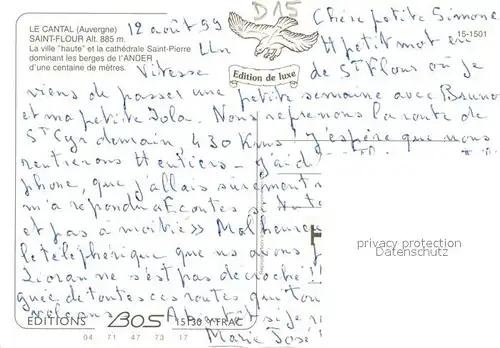 LE CANTAL (Auvergne)
SAINT-FLOUR Alt. 885 m.
La ville "haute" et la cathédrale Saint-Pierre
dominant les berges de l'ANDER
d'une centaine de mètres.
12 août 99
D15
Edition de luxe
15-1501
Chère petite Simone
Un
petit mot en
Vitesse
de St Flour où je
viens de passer une petite semaine avec Bruno
et ma petite Lola. Nous reprenons la route de
St Cyr demain, 430 Kms! J'espère que nous
rentrerons entiers - J'ai d
phone, que j'allais sûrement
m'a répondu "Ecoutes
et pas à moitié" Malheureu
le téléphérique que nous avons
Lioran ne s'est pas décroché!
de toutes ces routes qui
A bientôt si je
Marie José
EDITIONS BOS 15130 YTRAC
04 71 47 73 17
privacy protection
Datenschutz